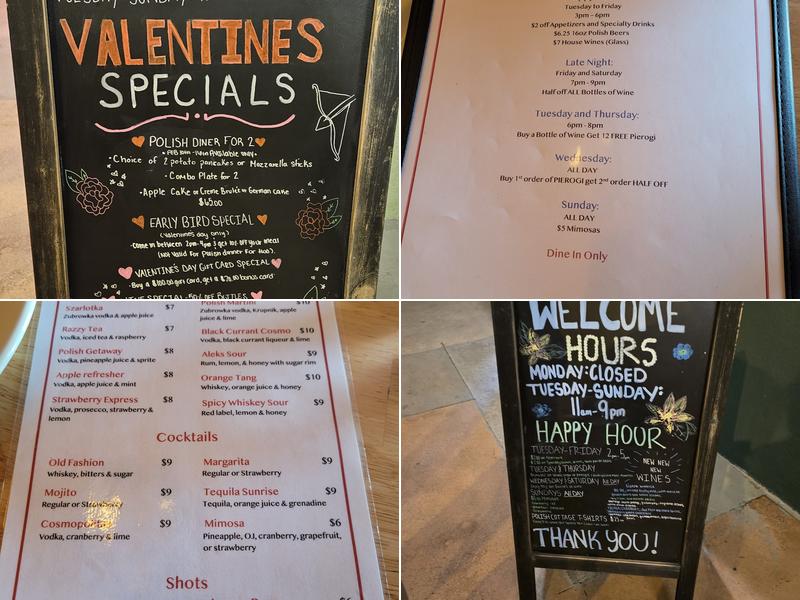 VALENTINES
SPECIALS
POLISH DINER FOR 2
Choice of 2 potato pancakes or Mozzarella sticks
Combo Plate for 2
Apple Cake or Creme Brule's or German cake
$65.00
EARLY BIRD SPECIAL
(Valentines day only)
Come in between 2pm-4pm & get 10% OFF your meal
(Not Valid For Polish dinner for two).
VALENTINE'S DAY Gift CARD SPECIAL
Buy a $100.00 gift card, get a bonus card
Tuesday to Friday
3pm - 6pm
$2 off Appetizers and Specialty Drinks
$6.25 16oz Polish Beers
$7 House Wines (Glass)
Late Night:
Friday and Saturday
7pm - 9pm
Half off ALL Bottles of Wine
Tuesday and Thursday:
6pm - 8pm
Buy a Bottle of Wine Get 12 FREE Pierogi
Wednesday:
ALL DAY
Buy 1st order of PIEROGI get 2nd order HALF OFF
Sunday:
ALL DAY
$5 Mimosas
Dine In Only
Szarlotka $7
Zubrowka vodka & apple juice
Razzy Tea $7
Vodka, iced tea & raspberry
Polish Getaway $8
Vodka, pineapple juice & sprite
Apple refresher $8
Vodka, apple juice & mint
Strawberry Express $8
Vodka, prosecco, strawberry &
lemon
Polish Martini $10
Zubrowka vodka, Krupnik, apple
juice & lime
Black Currant Cosmo $10
Vodka, black currant liqueur & lime
Aleks Sour $9
Rum, lemon, & honey with sugar rim
Orange Tang $10
Whiskey, orange juice & honey
Spicy Whiskey Sour $9
Red label, lemon & honey
Cocktails
Old Fashion $9
Whiskey, bitters & sugar
Mojito $9
Regular or Strawberry
Cosmopolitan $9
Vodka, cranberry & lime
Margarita $9
Regular or Strawberry
Tequila Sunrise $9
Tequila, orange juice & grenadine
Mimosa $6
Pineapple, OJ, cranberry, grapefruit,
or strawberry
Shots
WELCOME
HOURS
MONDAY: CLOSED
TUESDAY-SUNDAY:
11am-9pm
HAPPY HOUR
TUESDAY-FRIDAY
TUESDAY & THURSDAY
WEDNESDAY & SATURDAY ALL DAY
SUNDAYS ALL DAY
NEW NEW
NEW
WINES
POLISH COTTAGE T-SHIRTS
THANK YOU!